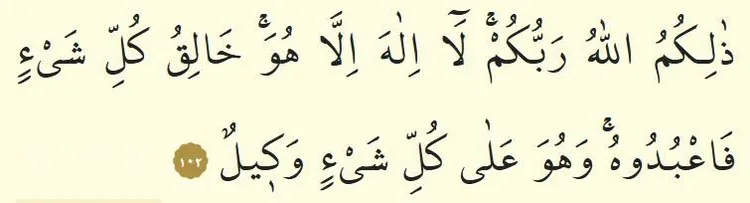 ذٰلِكُمُ اللّٰهُ رَبُّكُمْۚ لَٓا اِلٰهَ اِلَّا هُوَۚ خَالِقُ كُلِّ شَيْءٍ
فَاعْبُدُوهُۚ وَهُوَ عَلٰى كُلِّ شَيْءٍ وَك۪يلٌ ١٠٢